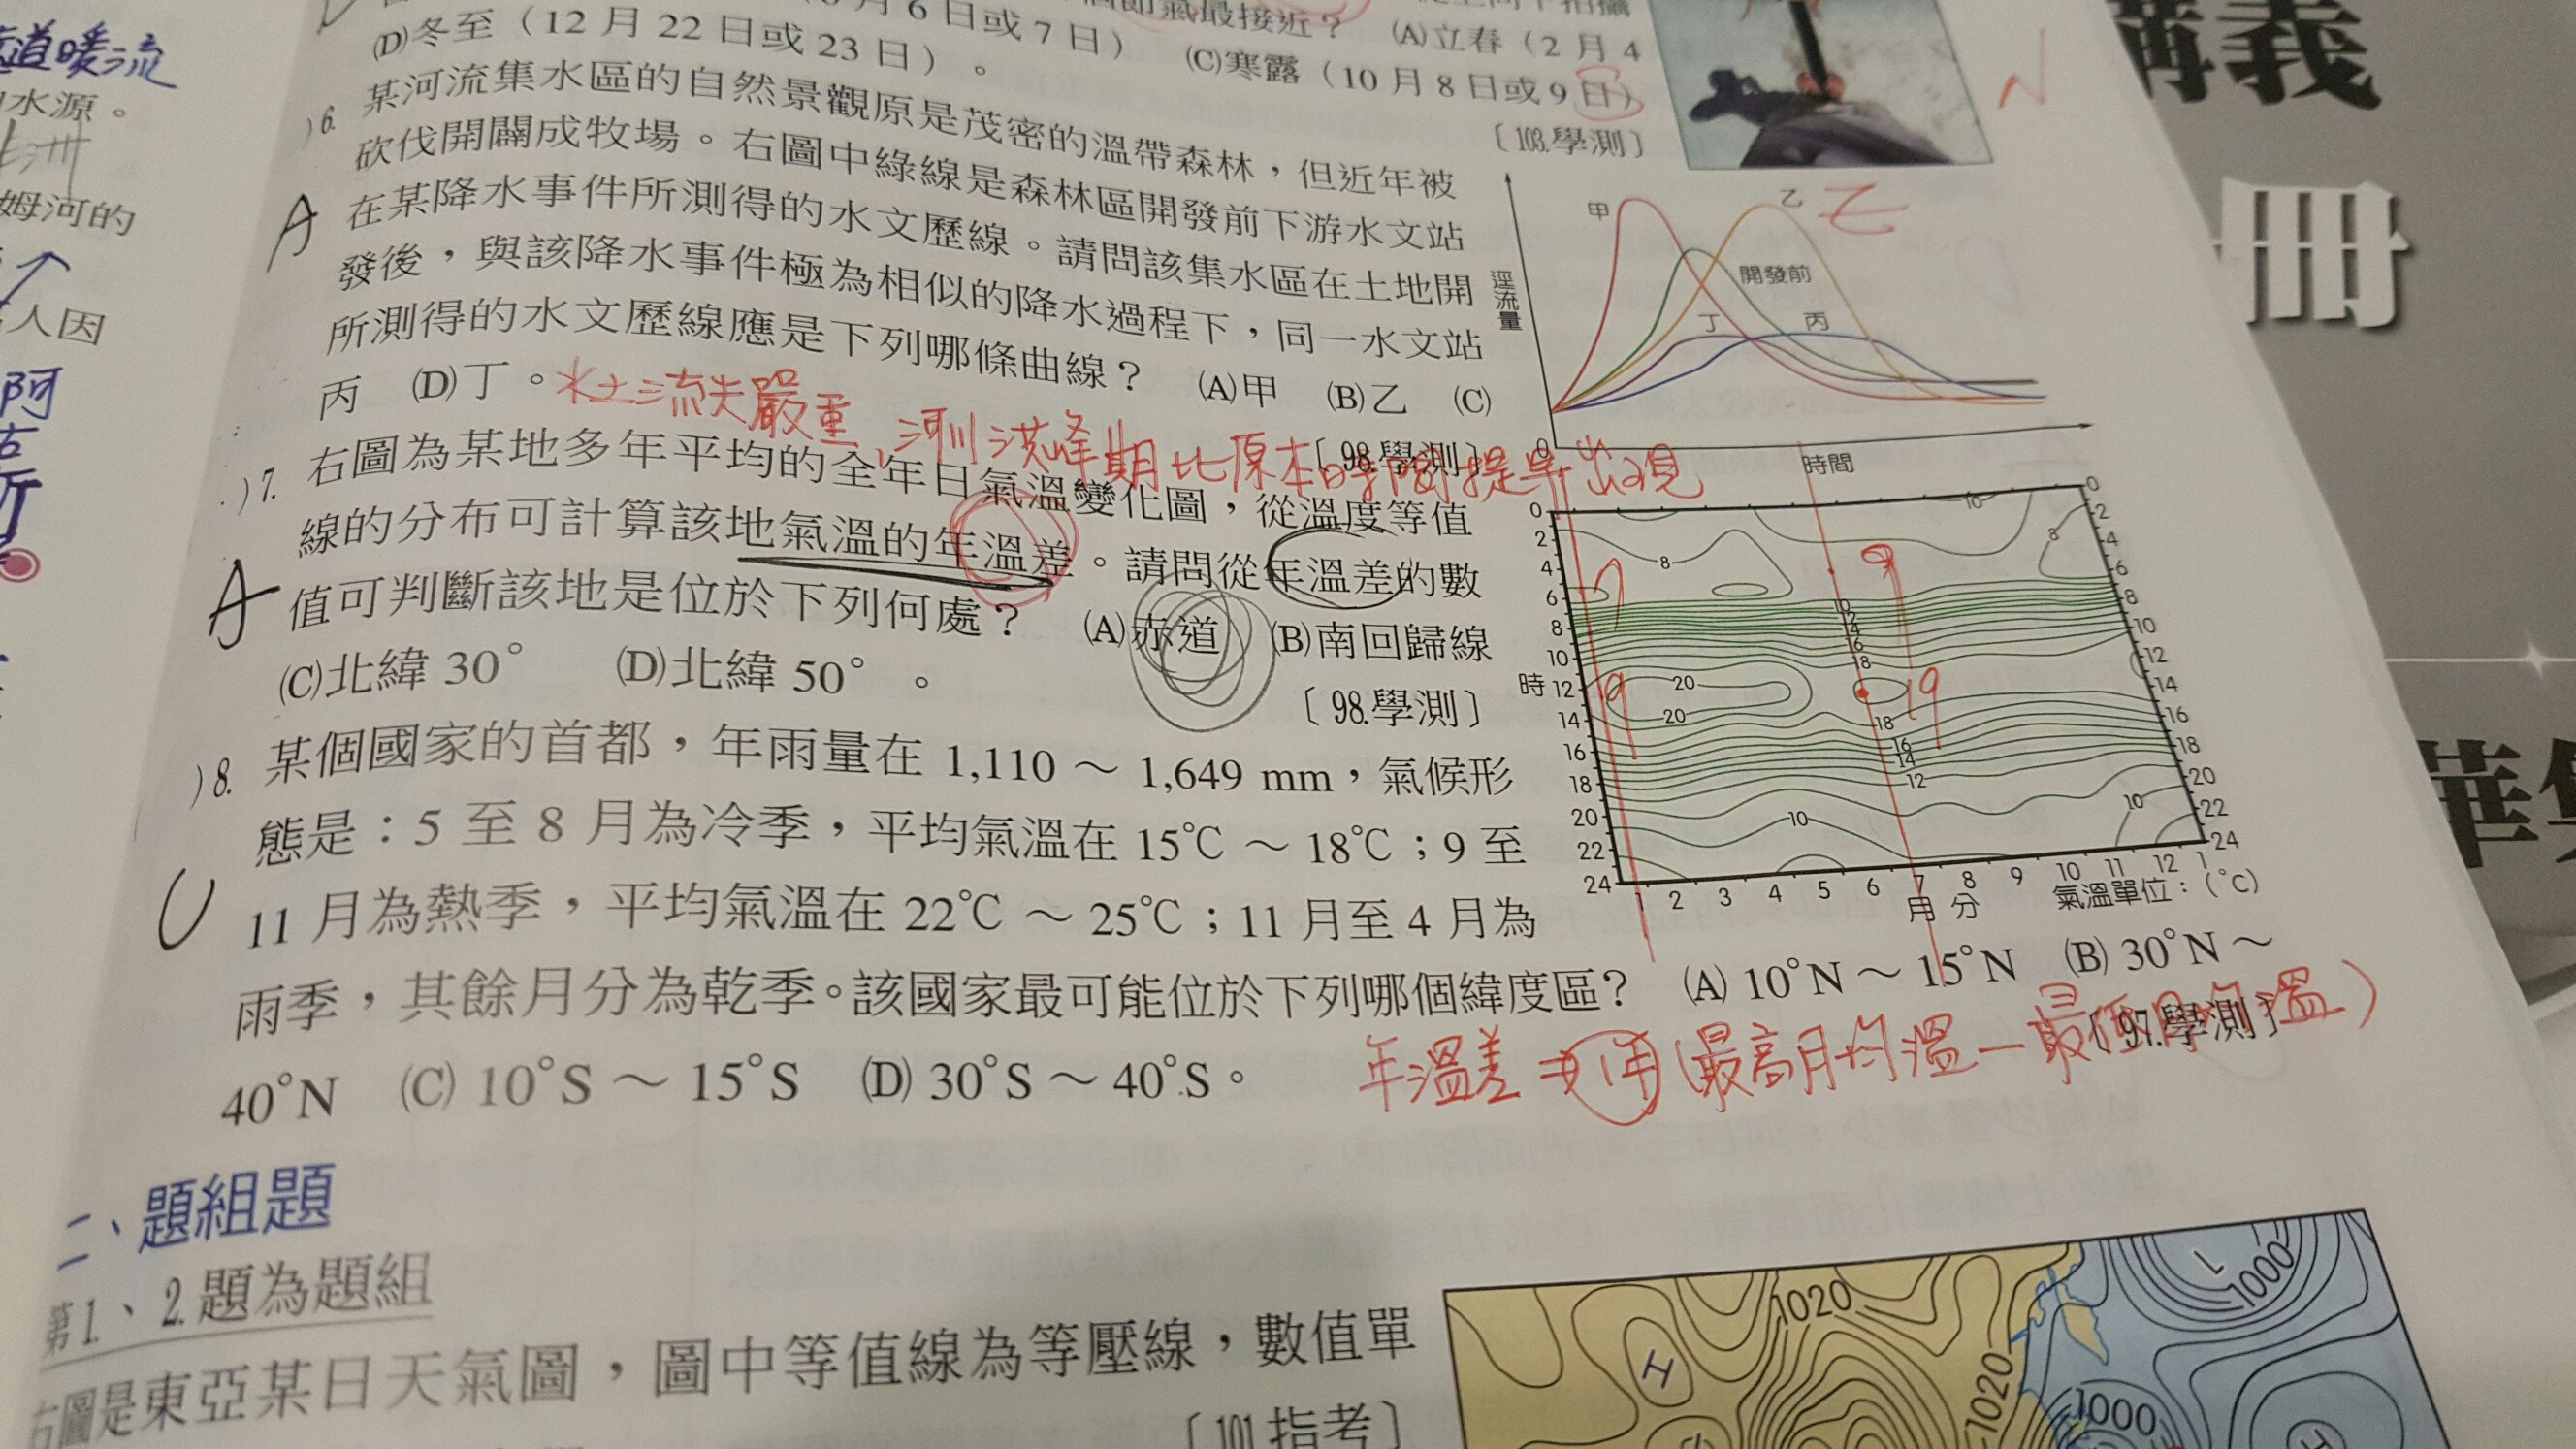 道暖流
水源。
姆河的
人因
阿
講義
冊
月6日或7日） (C)寒露（10月8日或9日）
最接近？ (A)立春（2月4
(D)冬至（12月22日或23日）。
〔103.學測〕
6. 某河流集水區的自然景觀原是茂密的溫帶森林，但近年被
砍伐開闢成牧場。右圖中綠線是森林區開發前下游水文站
在某降水事件所測得的水文歷線。請問該集水區在土地開
發後，與該降水事件極為相似的降水過程下，同一水文站
所測得的水文歷線應是下列哪條曲線？ (A)甲 (B)乙 (C)
丙 (D)丁。
〔98.學測〕
A
水土流失嚴重、河川洪峰期比原本時間提早出現
甲
乙
乙
開發前
丁
丙
逕流量
0
時間
7. 右圖為某地多年平均的全年日氣溫變化圖，從溫度等值
線的分布可計算該地氣溫的年溫差。請問從年溫差的數
值可判斷該地是位於下列何處？ (A)赤道 (B)南回歸線
(C)北緯 30° (D)北緯 50°。
〔98.學測〕
A
0 2 4 6 8 10 12 14 16 18 20 22 24
時
0 2 4 6 8 10 12 14 16 18 20 22 24
10
8
8
10
12
14
16
18
20
20
18
16
14
12
10
10
9
19
1 2 3 4 5 6 7 8 9 10 11 12 1
月分
氣溫單位：(°C)
8. 某個國家的首都，年雨量在 1,110 ～ 1,649 mm，氣候形
態是：5 至 8 月為冷季，平均氣溫在 15℃ ～ 18℃；9 至
11 月為熱季，平均氣溫在 22℃ ～ 25℃；11 月至 4 月為
雨季，其餘月分為乾季。該國家最可能位於下列哪個緯度區？ (A) 10°N ～ 15°N (B) 30°N ～
40°N (C) 10°S ～ 15°S (D) 30°S ～ 40°S。
〔97.學測〕
年溫差
(最高月均溫－最低月均溫)
二、題組題
第1、2.題為題組
右圖是東亞某日天氣圖，圖中等值線為等壓線，數值單
〔101.指考〕
1020
1020
1000
1000
H
L